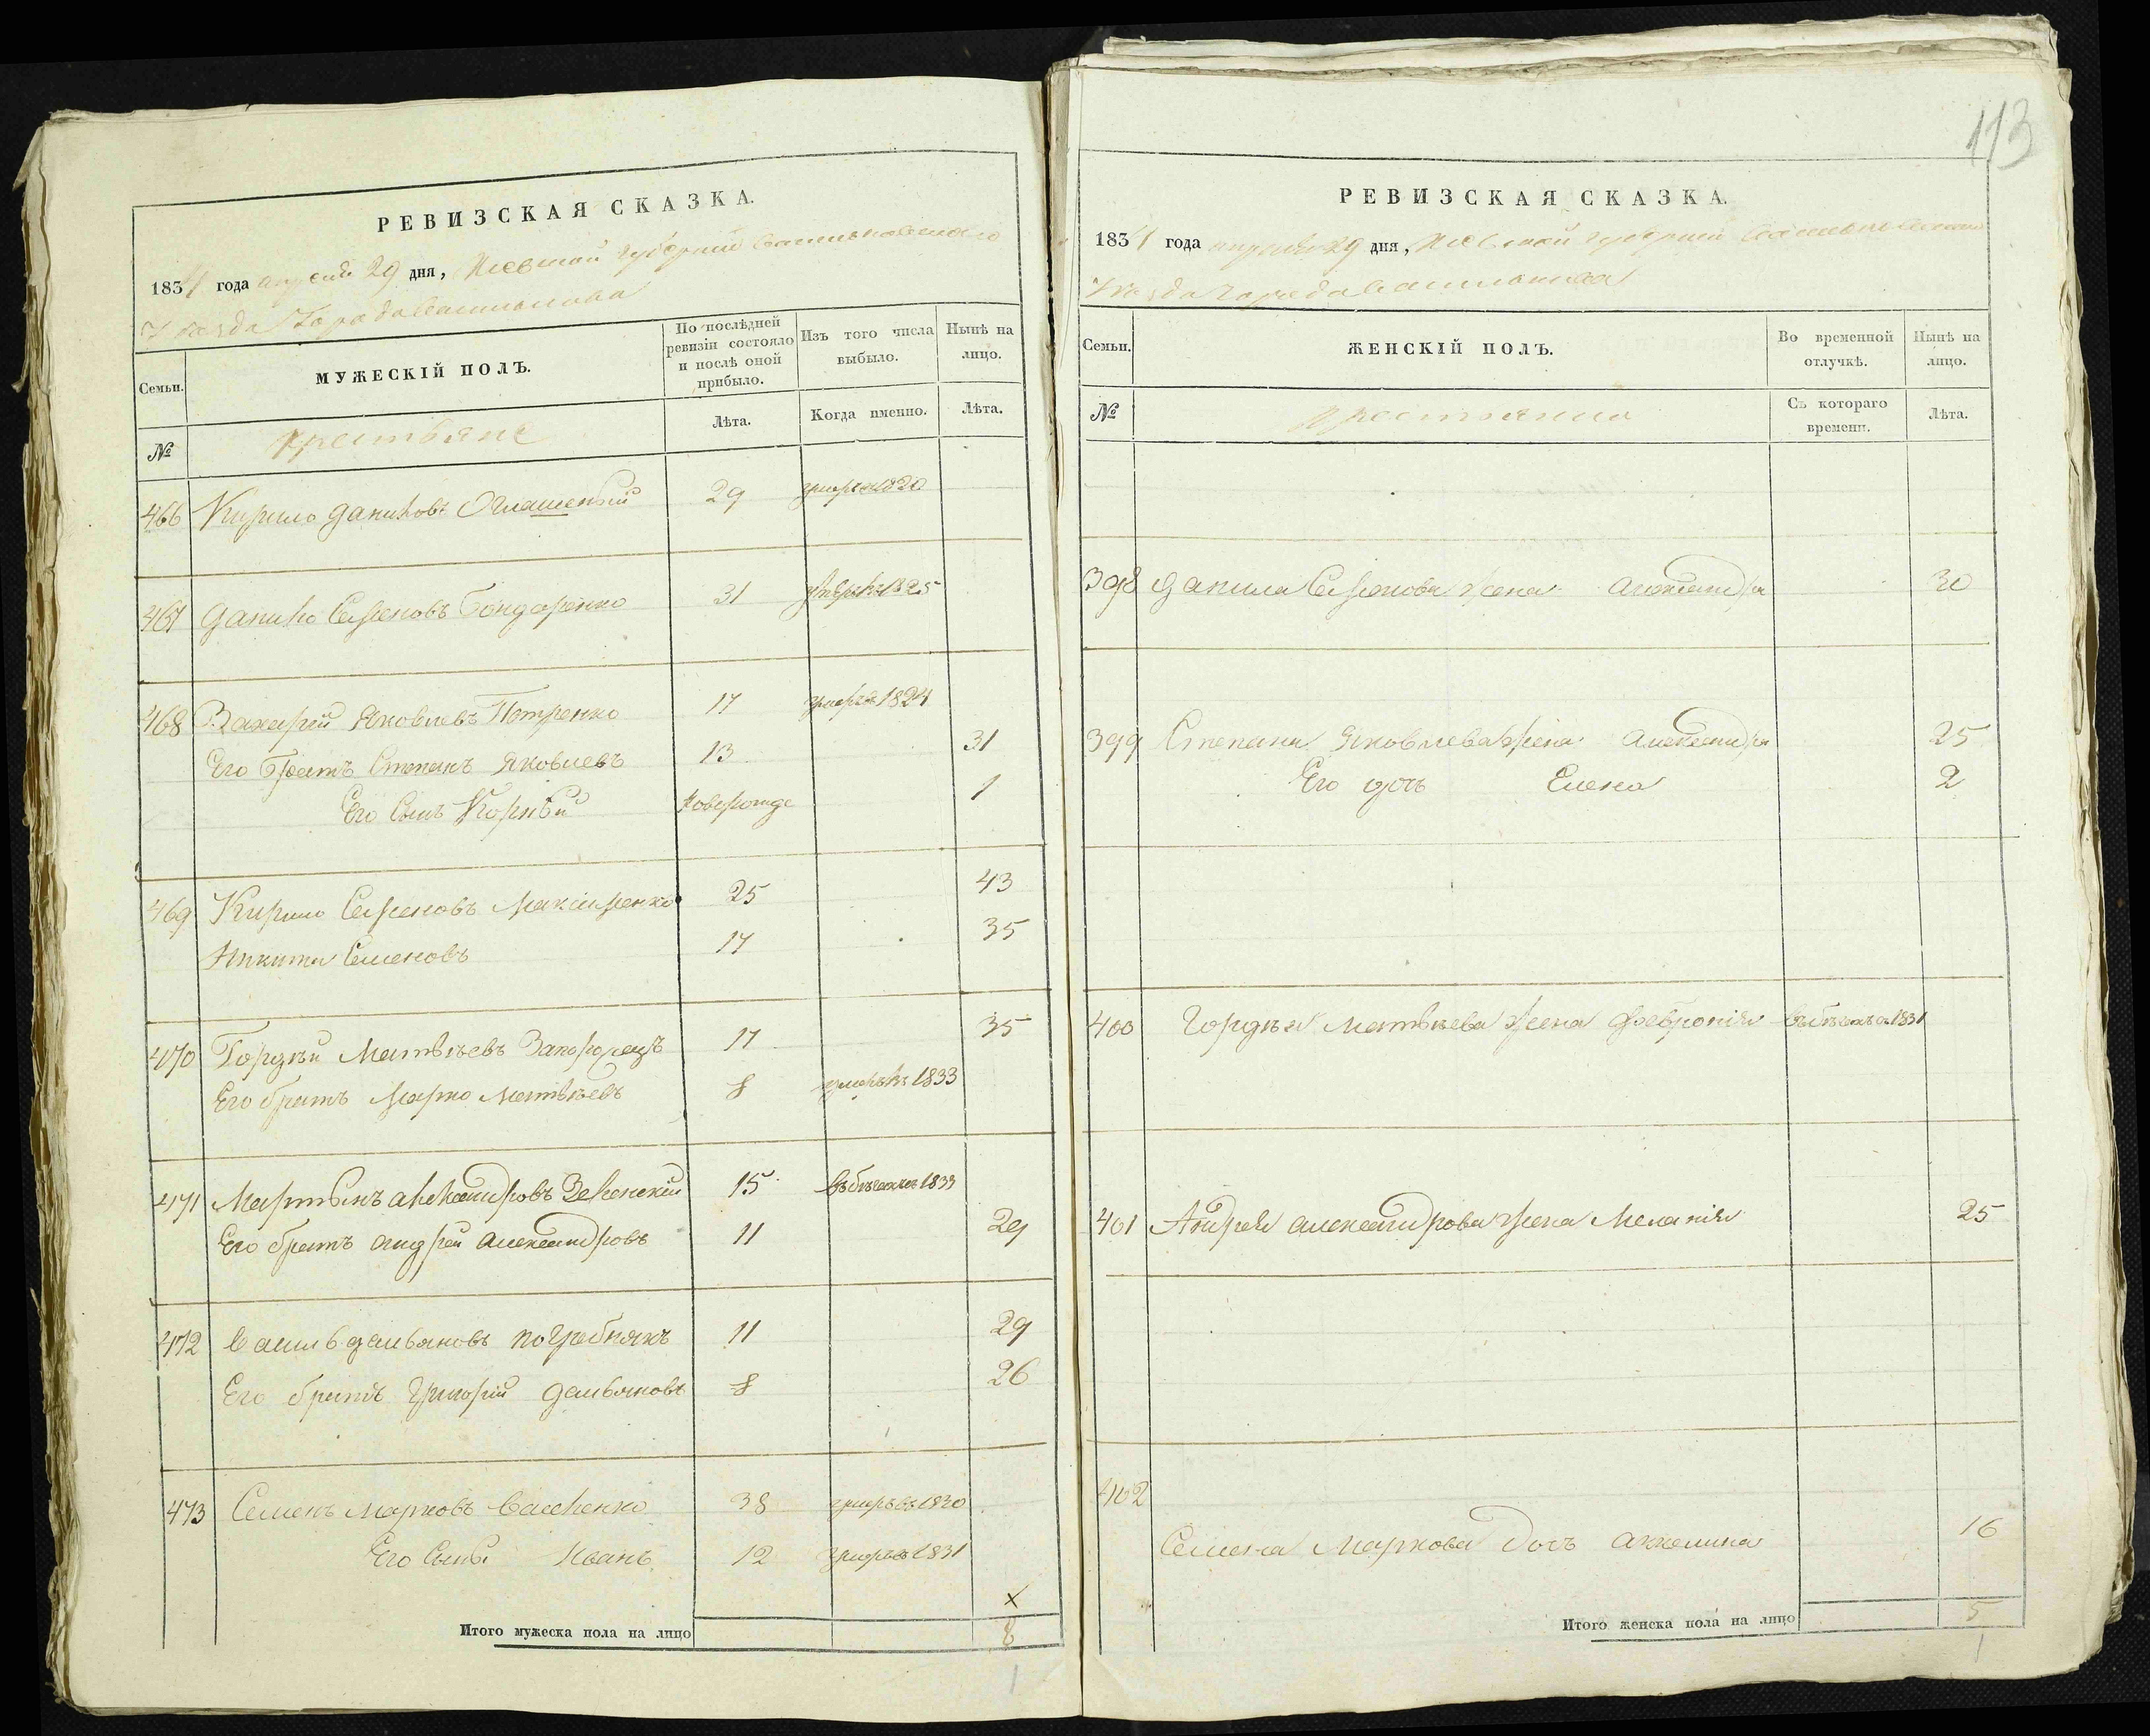 РЕВИЗСКАЯ СКАЗКА.
1834 года апреля 29 дня, Киевской губерній Васильковскаго
Уезда Города Василькова
Семьи.
МУЖЕСКІЙ ПОЛЪ.
По послѣдней ревизіи состояло и послѣ оной прибыло.
Изъ того числа выбыло.
Нынѣ на лицо.
№
Крестьяне
Лѣта.
Когда именно.
Лѣта.
466 Кирило Даниловъ Оглашеный 29 умеръ 1820
467 Данило Семеновъ Бондаренко 31 1825
468 Захарій Яковлевъ Петренко 17 умеръ 1824
Его братъ Степанъ Яковлевъ 13 31
Его сынъ Корнѣй новорожде 1
469 Кирило Семеновъ Максименко 25 43
Никита Семеновъ 17 35
470 Гордѣй Матвѣевъ Запорожецъ 17 35
Его братъ Марко Матвѣевъ 8 умеръ въ 1833
471 Мартынъ Александровъ Зеленскій 15 въ бѣгахъ 1833
Его братъ Андрей Александровъ 11 29
472 Василь Демьяновъ Погребнякъ 11 29
Его братъ Григорій Демьяновъ 8 26
473 Семенъ Марковъ Василенко 38 умеръ въ 1830
Его сынъ Иванъ 12 умеръ 1831
х
Итого мужеска пола на лицо 8
1
113
РЕВИЗСКАЯ СКАЗКА.
1834 года апреля 29 дня, Киевской губерній Васильковскаго
Уезда Города Василькова
Семьи.
ЖЕНСКІЙ ПОЛЪ.
Во временной отлучкѣ.
Нынѣ на лицо.
№
Съ котораго времени.
Лѣта.
398 Данила Семенова жена Александра 30
399 Степана Яковлева жена Александра 25
Его дочь Елена 2
400 Гордѣя Матвѣева жена Февронія въ бѣгахъ 1831
401 Андрея Александрова жена Меланія 25
402
Семена Маркова дочъ Акилина 16
Итого женска пола на лицо 5
1